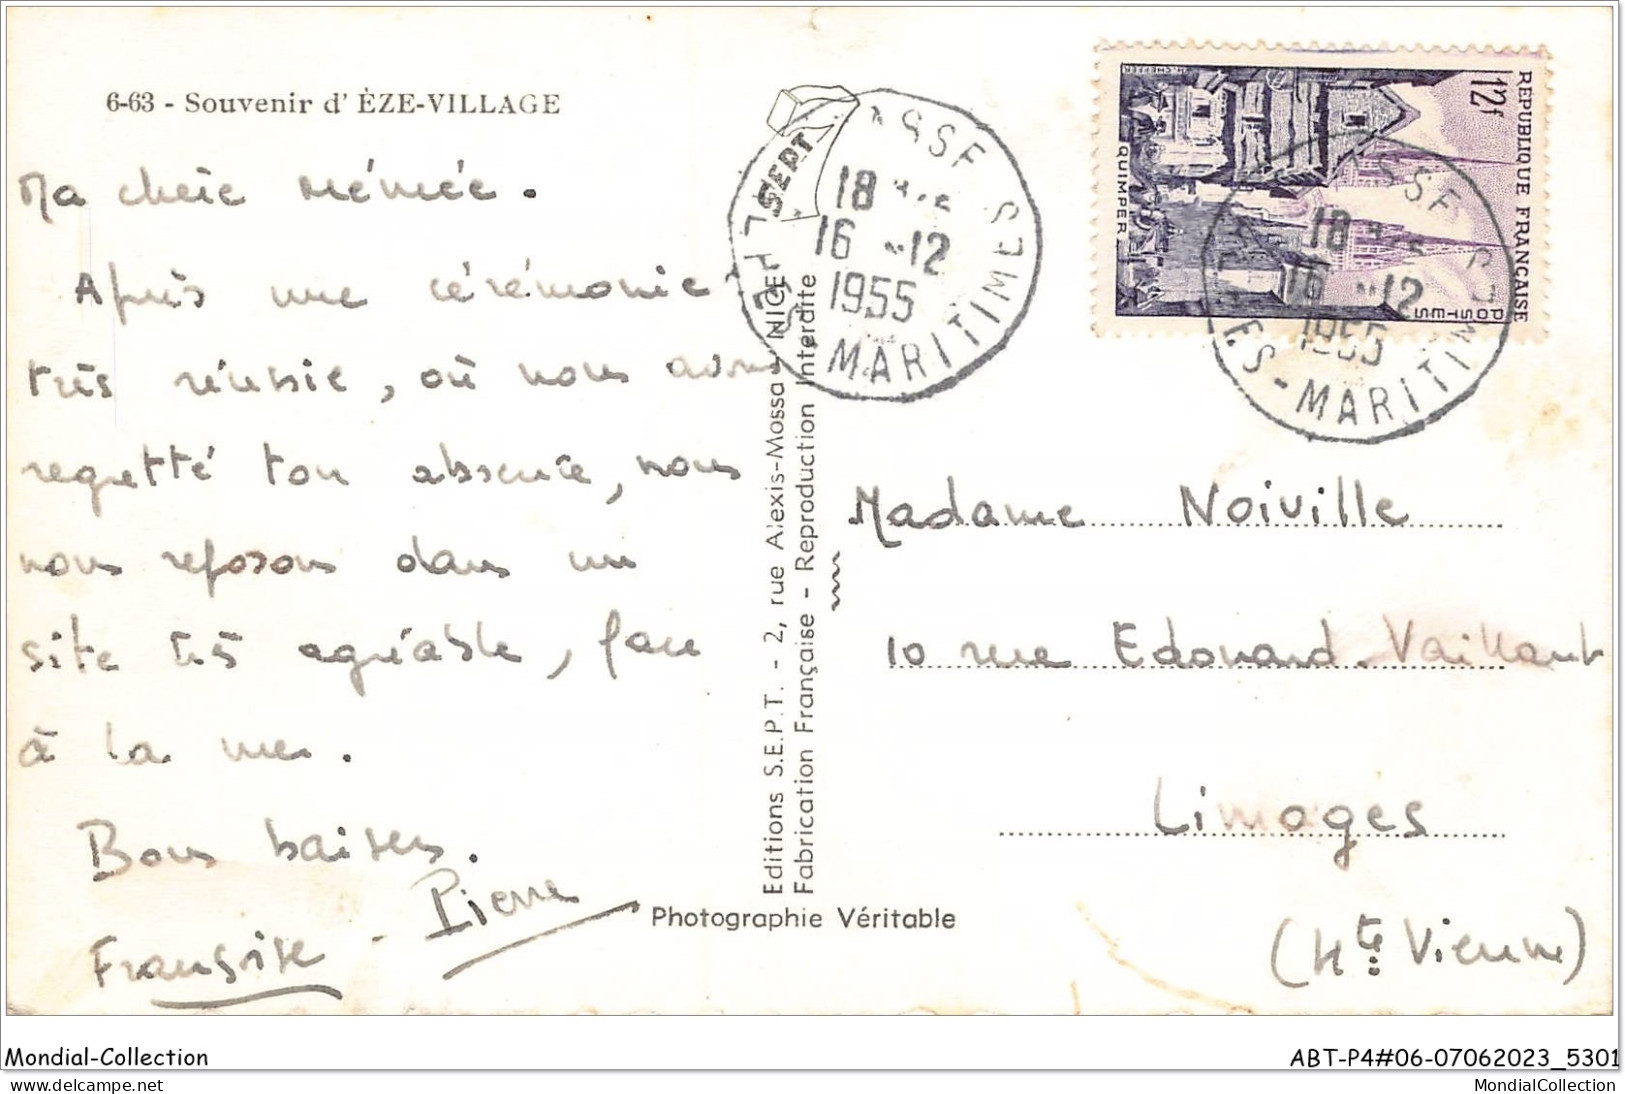 6-63 - Souvenir d' ÈZE-VILLAGE
Ma chère mémée.
Après une cérémonie
très réussie, où nous avons
regretté ton absence, nous
nous reposons dans un
site très agréable, face
à la mer.
Bons baisers.
Françoise - Pierre
SEPT
18
16 -12
1955
MARITIMES
Editions S.E.P.T. - 2, rue Alexis-Mossa - NICE
Fabrication Française - Reproduction Interdite
Photographie Véritable
REPUBLIQUE FRANÇAISE
POSTES
12f
QUIMPER
H. CHEFFER
18
16 -12
1955
ES - MARITIMES
Madame Noiville
10 rue Edouard-Vaillant
Limoges
(Hte Vienne)
Mondial-Collection
ABT-P4#06-07062023_5301
delcampe.net
MondialCollection